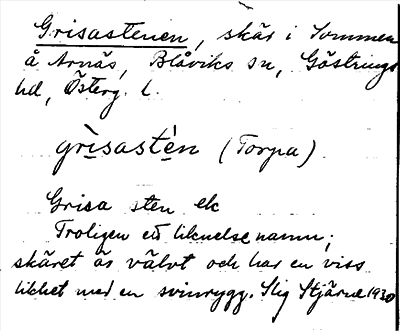 Grisastenen, skär i Sommen
å Arnäs, Blåviks sn, Göstrings
hd, Österg. l.
grìsastè́n (Torpa)
Grisa sten ek
Troligen ett liknelsenamn;
skäret är välvt och har en viss
likhet med en svinrygg. Stig Stjärne 1930